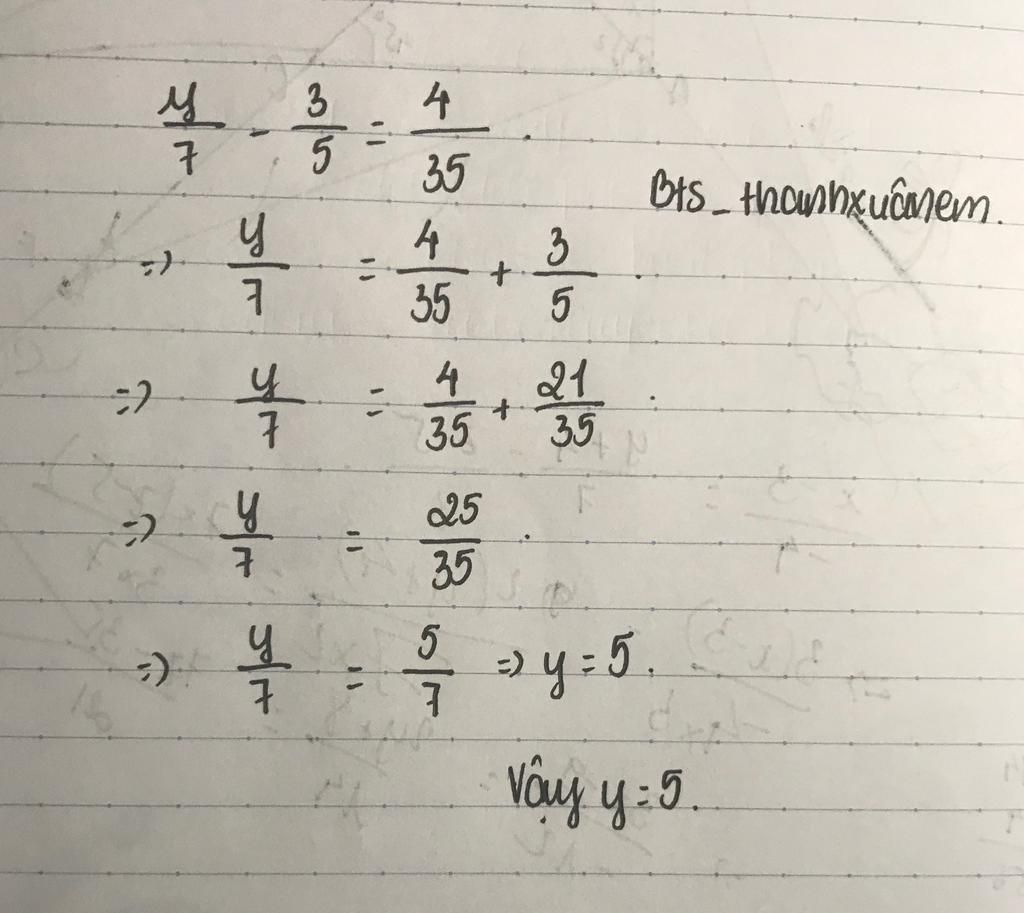 y/7 - 3/5 = 4/35 .
Bts_thanhxuânem.
=> y/7 = 4/35 + 3/5 .
=> y/7 = 4/35 + 21/35 .
=> y/7 = 25/35 .
=> y/7 = 5/7 => y = 5 .
Vậy y = 5 .